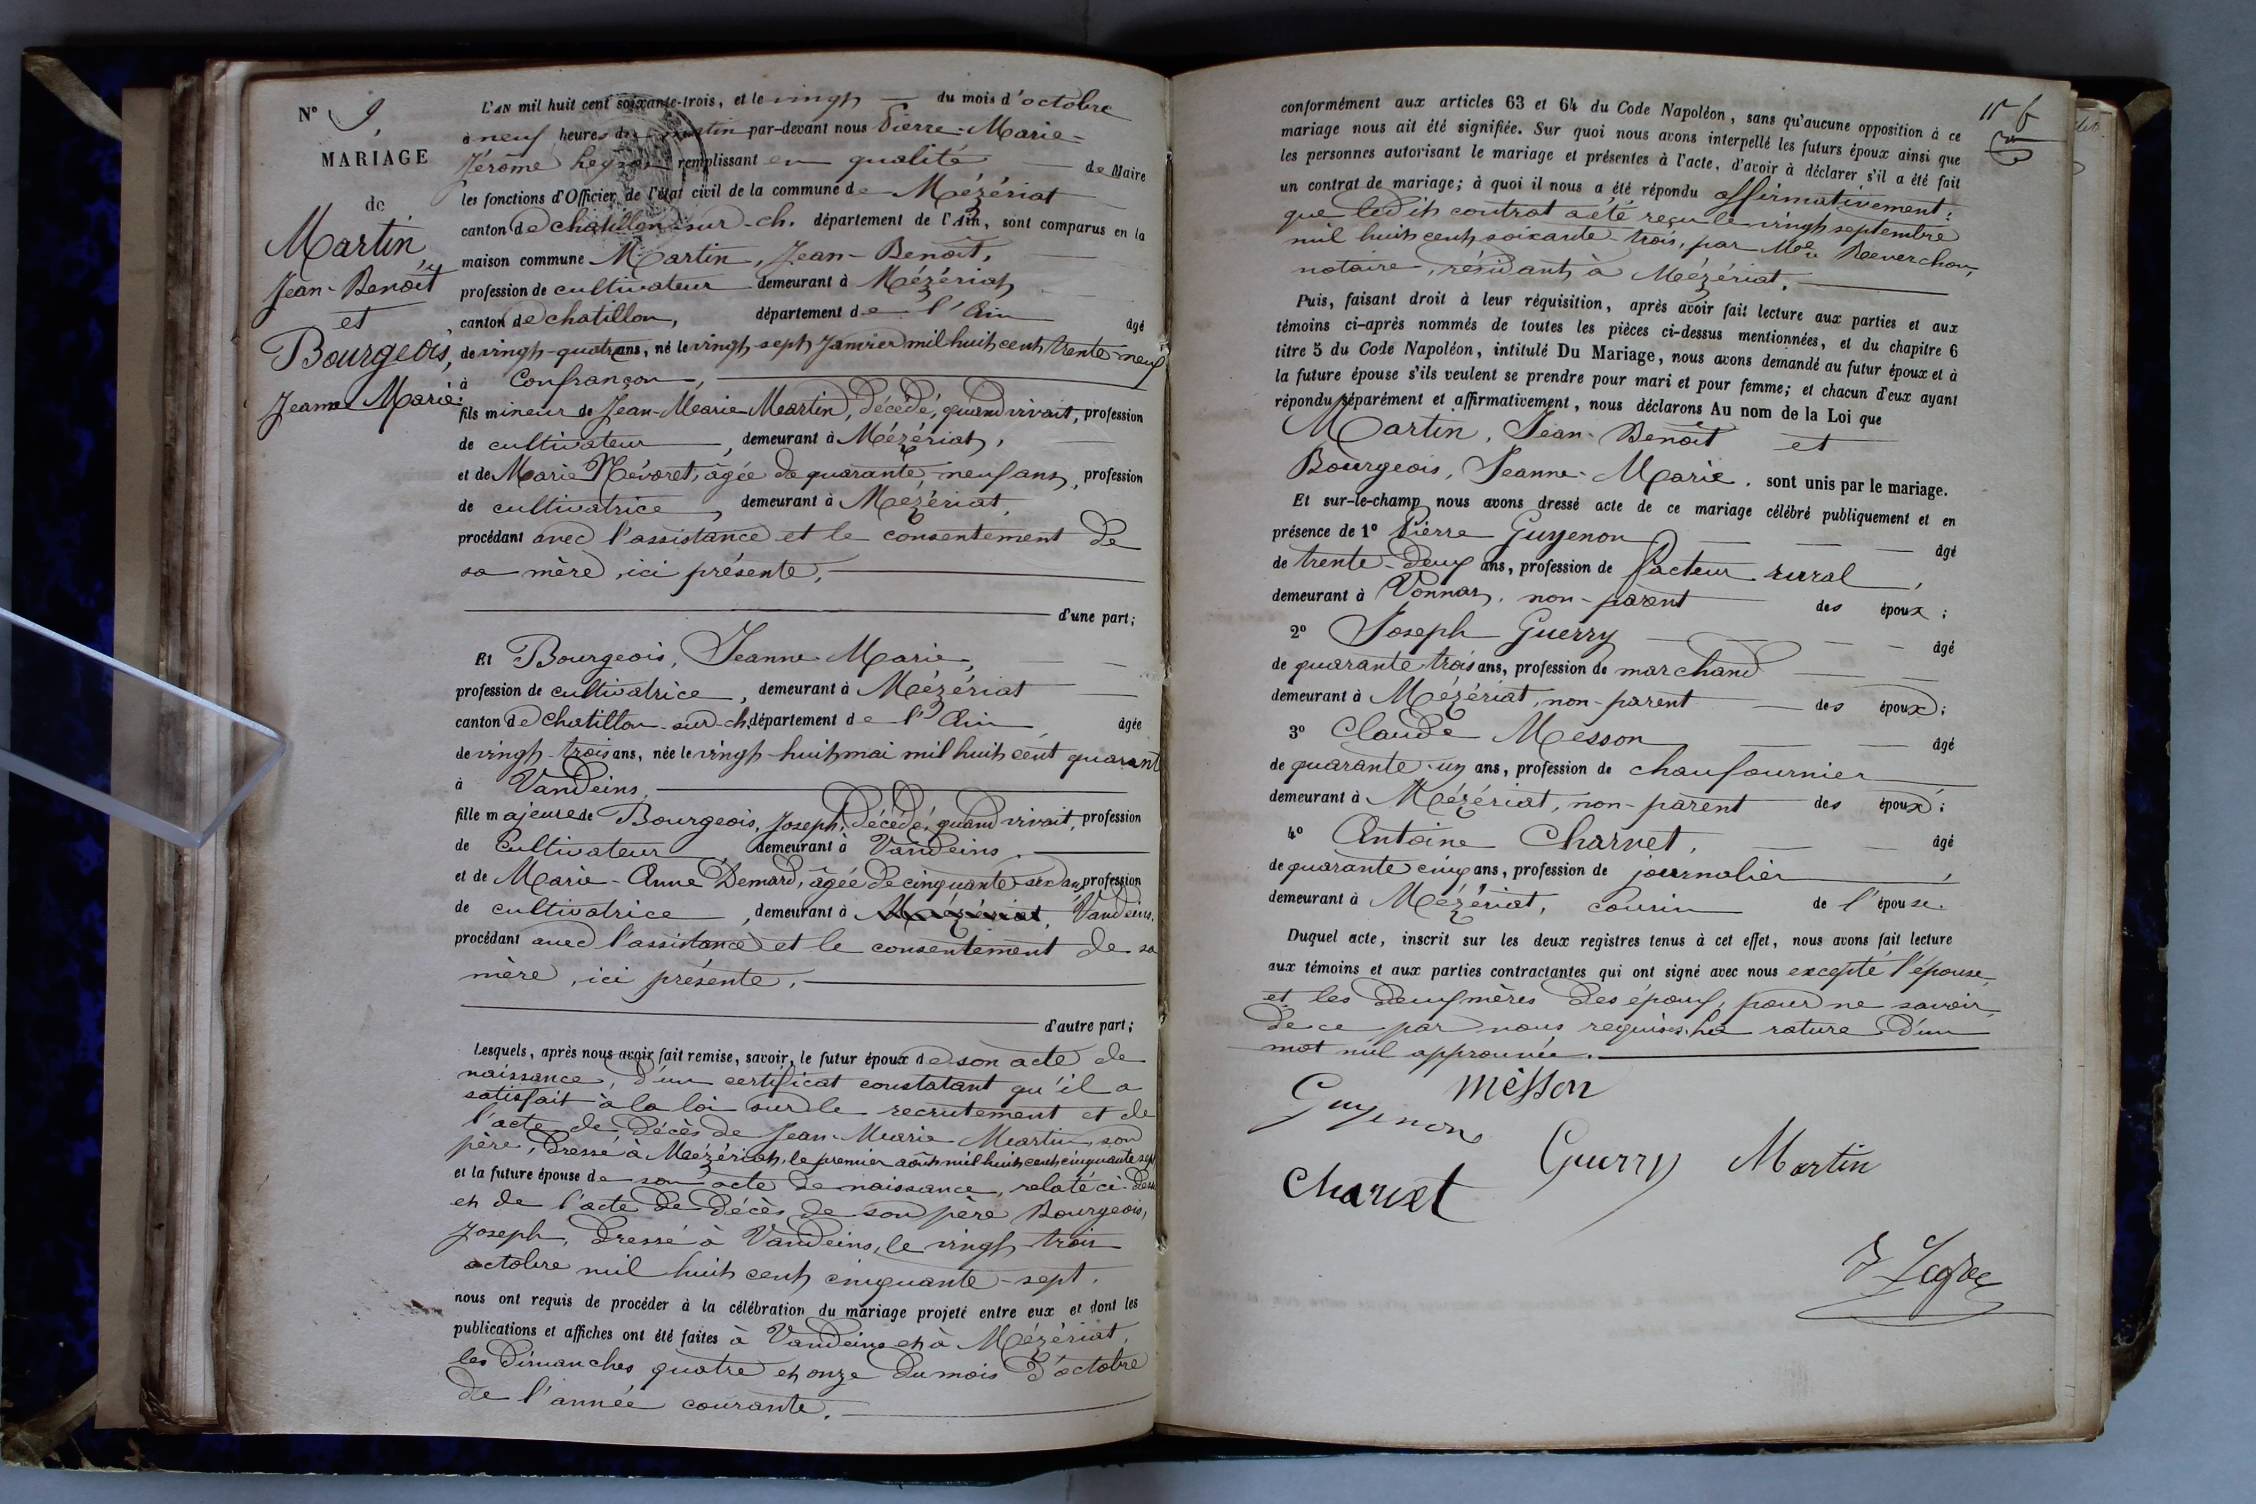 N° 9
MARIAGE
de
Martin,
Jean-Benoît
et
Bourgeois,
Jeanne Marie.
L'AN mil huit cent soixante-trois, et le vingt du mois d'octobre
à neuf heures du matin par-devant nous Pierre-Marie-
Jérôme remplissant en qualité de Maire
les fonctions d'Officier de l'état civil de la commune de Mézériat
canton de chatillon sur-ch. département de l'Ain, sont comparus en la
maison commune Martin, Jean-Benoît,
profession de cultivateur demeurant à Mézériat
canton de chatillon, département de l'Ain âgé
de vingt-quatre ans, né le vingt sept Janvier mil huit cent trente neuf
à Confrançon,
fils mineur de Jean-Marie Martin, décédé, quand vivait, profession
de cultivateur, demeurant à Mézériat,
et de Marie Névoret, âgée de quarante-neuf ans, profession
de cultivatrice, demeurant à Mézériat,
procédant avec l'assistance et le consentement de
sa mère, ici présente,
d'une part;
Et Bourgeois, Jeanne-Marie,
profession de cultivatrice, demeurant à Mézériat
canton de Chatillon-sur-ch. département de l'Ain âgée
de vingt-trois ans, née le vingt-huit mai mil huit cent quarante
à Vandeins,
fille majeure de Bourgeois, Joseph, décédé, quand vivait, profession
de Cultivateur, demeurant à Vandeins,
et de Marie-Anne Demard, âgée de cinquante-six ans, profession
de cultivatrice, demeurant à Mézériat, Vandeins,
procédant avec l'assistance et le consentement de sa
mère, ici présente,
d'autre part;
Lesquels, après nous avoir fait remise, savoir, le futur époux de son acte de
naissance, d'un certificat constatant qu'il a
satisfait à la loi sur le recrutement et de
l'acte de décès de Jean-Marie Martin, son
père, dressé à Mézériat, le premier août mil huit cent cinquante sept
et la future épouse de son acte de naissance, relaté ci-dessus
et de l'acte de décès de son père Bourgeois,
Joseph, dressé à Vandeins, le vingt-trois
octobre mil huit cent cinquante-sept.
nous ont requis de procéder à la célébration du mariage projeté entre eux et dont les
publications et affiches ont été faites à Vandeins et à Mézériat,
les Dimanches quatre et onze du mois d'octobre
de l'année courante.
conformément aux articles 63 et 64 du Code Napoléon, sans qu'aucune opposition à ce
mariage nous ait été signifiée. Sur quoi nous avons interpellé les futurs époux ainsi que
les personnes autorisant le mariage et présentes à l'acte, d'avoir à déclarer s'il a été fait
un contrat de mariage; à quoi il nous a été répondu affirmativement:
que ledit contrat a été reçu le vingt septembre
mil huit cent soixante-trois, par Me Reverchon,
notaire, résidant à Mézériat.
Puis, faisant droit à leur réquisition, après avoir fait lecture aux parties et aux
témoins ci-après nommés de toutes les pièces ci-dessus mentionnées, et du chapitre 6
titre 5 du Code Napoléon, intitulé Du Mariage, nous avons demandé au futur époux et à
la future épouse s'ils veulent se prendre pour mari et pour femme; et chacun d'eux ayant
répondu séparément et affirmativement, nous déclarons Au nom de la Loi que
Martin, Jean-Benoît et
Bourgeois, Jeanne-Marie, sont unis par le mariage.
Et sur-le-champ nous avons dressé acte de ce mariage célébré publiquement et en
présence de 1° Pierre Guyenon âgé
de trente-deux ans, profession de facteur rural,
demeurant à Vonnas, non-parent des époux;
2° Joseph Guerry âgé
de quarante trois ans, profession de marchand
demeurant à Mézériat, non-parent des époux;
3° Claude Messon âgé
de quarante-un ans, profession de chaufournier
demeurant à Mézériat, non-parent des époux;
4° Antoine Charvet, âgé
de quarante cinq ans, profession de journalier,
demeurant à Mézériat, cousin de l'épouse.
Duquel acte, inscrit sur les deux registres tenus à cet effet, nous avons fait lecture
aux témoins et aux parties contractantes qui ont signé avec nous excepté l'épouse
et les deux mères des époux, pour ne savoir,
de ce par nous requises. La rature d'un
mot nul approuvée.
Guyenon
Messon
Guerry
Martin
Charvet